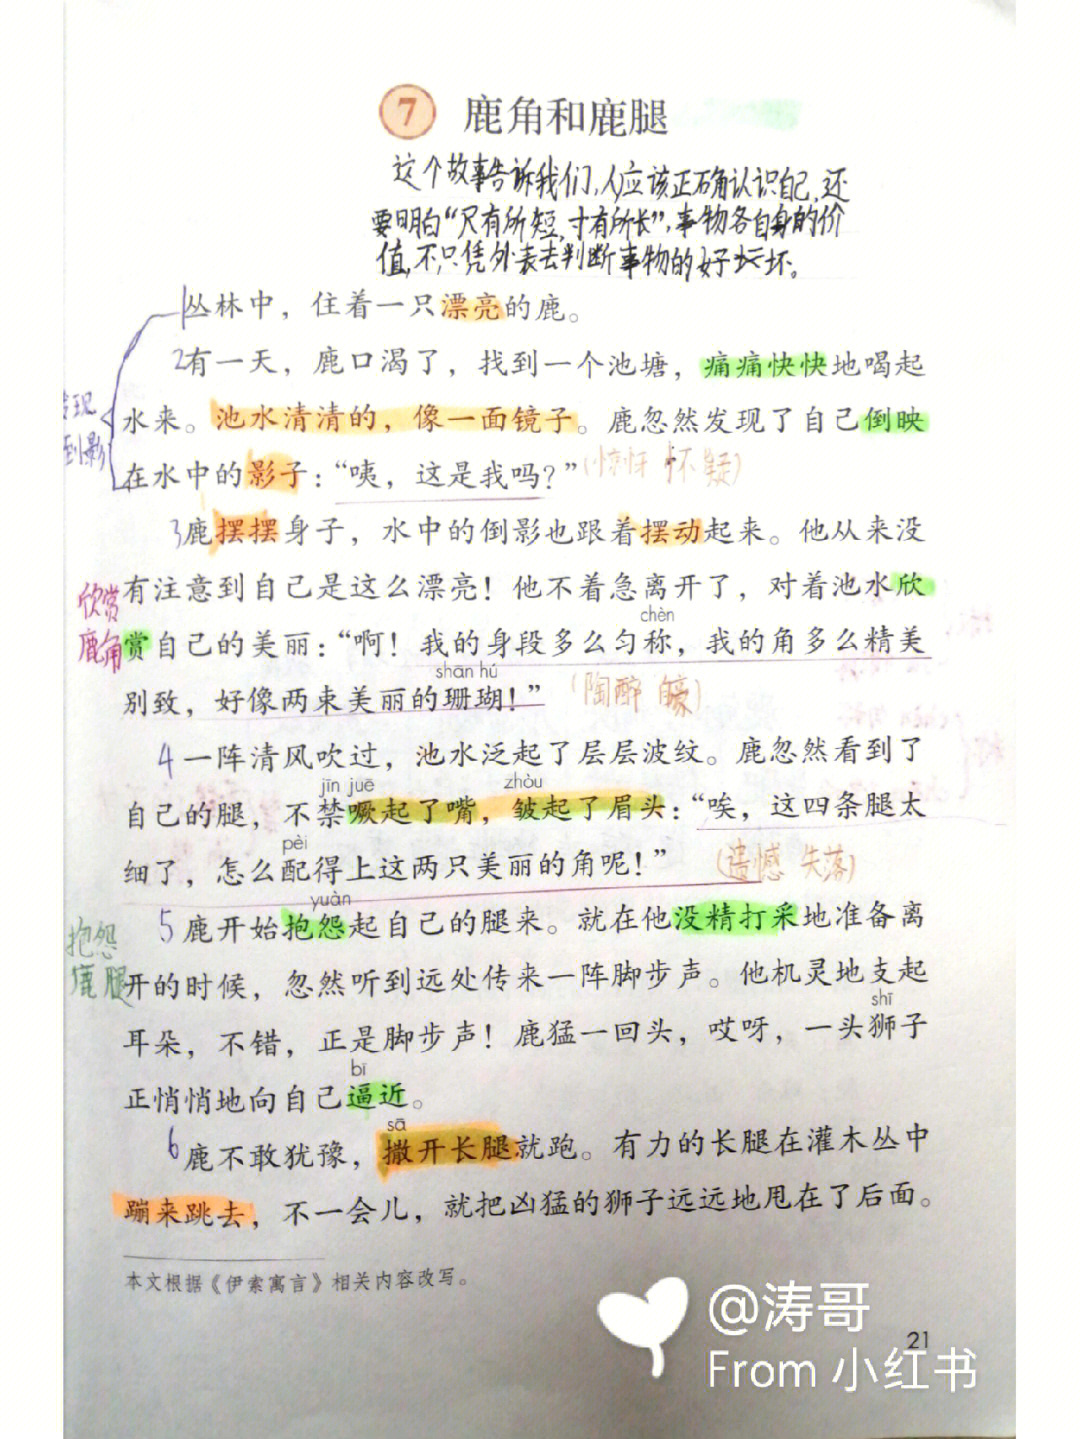 7 鹿角和鹿腿
这个故事告诉我们,人应该正确认识自己,还
要明白“尺有所短,寸有所长”,事物各自身的价
值,不只凭外表去判断事物的好坏。
1丛林中，住着一只漂亮的鹿。
2有一天，鹿口渴了，找到一个池塘，痛痛快快地喝起
发现
水来。池水清清的，像一面镜子。鹿忽然发现了自己倒映
倒影
在水中的影子：“咦，这是我吗？”(惊讶 怀疑)
3鹿摆摆身子，水中的倒影也跟着摆动起来。他从来没
欣赏
有注意到自己是这么漂亮！他不着急离开了，对着池水欣
chèn
鹿角
赏自己的美丽：“啊！我的身段多么匀称，我的角多么精美
shān hú
别致，好像两束美丽的珊瑚！”(陶醉 自豪)
4一阵清风吹过，池水泛起了层层波纹。鹿忽然看到了
jīn juē zhòu
自己的腿，不禁噘起了嘴，皱起了眉头：“唉，这四条腿太
pèi
细了，怎么配得上这两只美丽的角呢！”(遗憾 失落)
yuàn
5鹿开始抱怨起自己的腿来。就在他没精打采地准备离
抱怨
鹿腿
开的时候，忽然听到远处传来一阵脚步声。他机灵地支起
shī
耳朵，不错，正是脚步声！鹿猛一回头，哎呀，一头狮子
bī
正悄悄地向自己逼近。
sā
6鹿不敢犹豫，撒开长腿就跑。有力的长腿在灌木丛中
蹦来跳去，不一会儿，就把凶猛的狮子远远地甩在了后面。
本文根据《伊索寓言》相关内容改写。
21
@涛哥
From 小红书